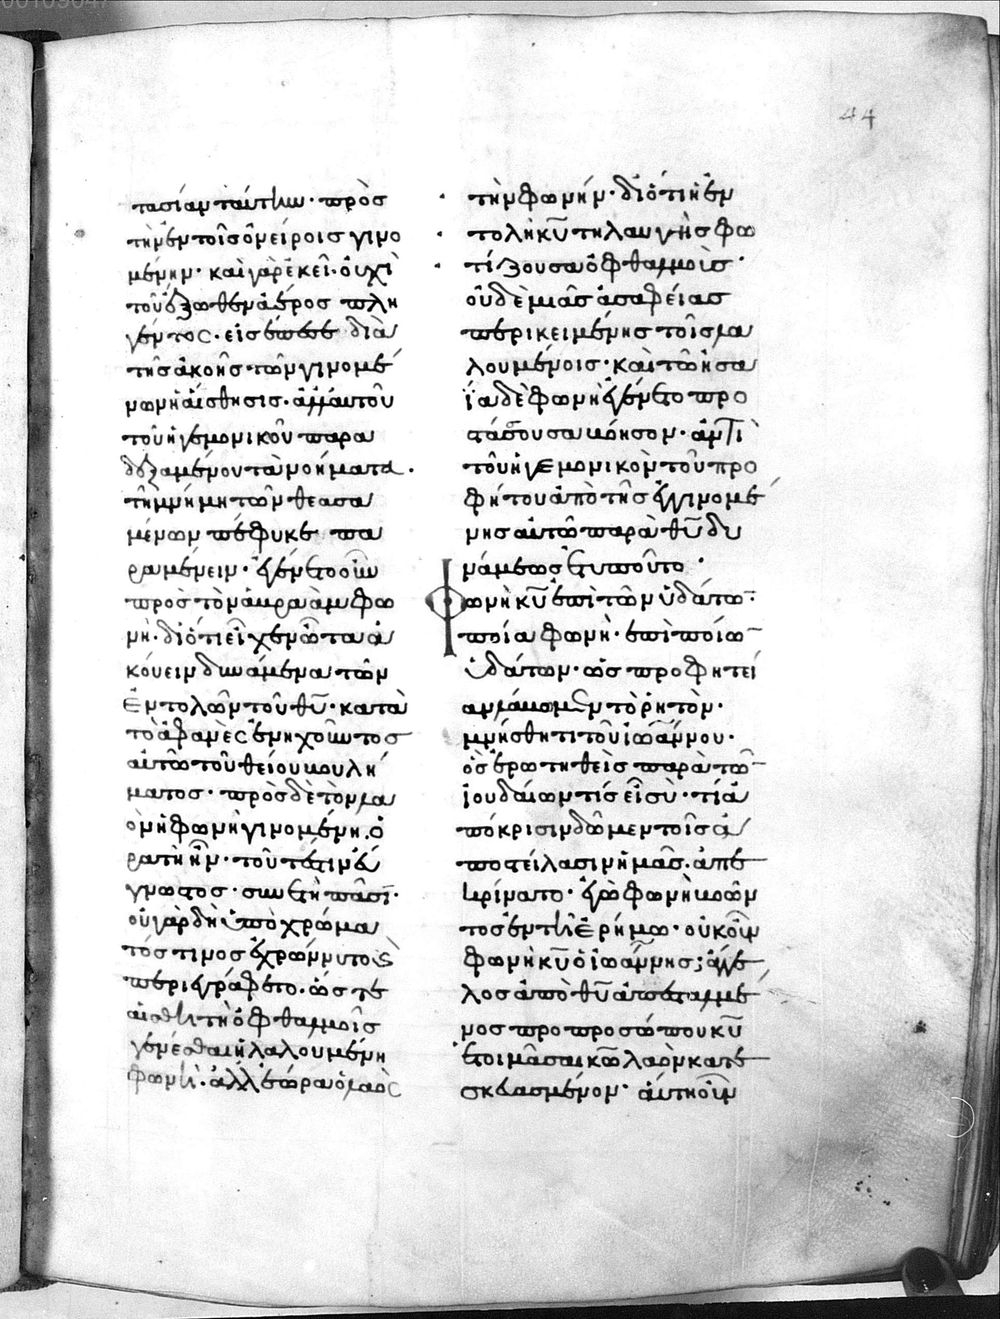 44
τασίαν ταύτην· πρὸς
τὴν ἐν τοῖς ὀνείροις γινο
μένην· καὶ γὰρ ἐκεῖ· οὐχὶ
τοῦ ἔξωθεν ἀέρος πλη
γέντος· διὰ
τῆς ἀκοῆς τῶν γινομέ
νων ἡ αἴσθησις· ἀλλ' αὐτοῦ
τοῦ ἡγεμονικοῦ παρα
δεξαμένου τὰ νοήματα·
τῇ μνήμῃ τῶν θεασα
μένων πέφυκε πα
ραμένειν· ἐγένετο οὖν
πρὸς τὸν λαὸν φω
νὴ· διότι εἶχεν ὦτα ἀ
κούειν δυνάμενα τῶν
ἐντολῶν τοῦ θῦ· κατὰ
τὸ ἀφανὲς ἐνηχοῦντος
αὐτῶ τοῦ θείου βουλή
ματος· πρὸς δὲ τὸν λα
ὸν ἡ φωνὴ γινομένη· ὁ
ρατὴ ἦν· τοῦτ' ἔστιν εὔ
γνωστος· συνετὴ πᾶσι·
οὐ γὰρ δὴ ὑπὸ χρώμα
τός τινος ἐχρώννυτο
περιεγράφετο· ὥστε
αἰσθητὴ ὀφθαλμοῖς
γενέσθαι ἡ λαλουμένη
φωνή· ἀλλ' ἑώρα ὁ λαὸς
τὴν φωνήν· διότι ἦν ἐν
τολὴ κῦ τηλαυγὴς φω
τίζουσα ὀφθαλμοὺς·
οὐδὲ μιᾶς ἀσαφείας
περικειμένης τοῖς λα
λουμένοις· καὶ τῶ ἡσα
ΐα δὲ φωνὴ ἐγένετο προ
στάσσουσα βόησον· ἀντὶ
τοῦ ἡγεμονικὸν τοῦ προ
φήτου ἀπὸ τῆς ἐγγινομέ
νης αὐτῶ παρὰ θῦ δυ
νάμεως ἐτυποῦτο·
Φωνὴ κῦ ἐπὶ τῶν ὑδάτων·
ποία φωνὴ· ἐπὶ ποίων
ὑδάτων· ὡς προφητεί
αν λάβωμεν τὸ ῥητὸν·
μνήσθητι τοῦ ἰωάννου·
ὃς ἐρωτηθεὶς παρὰ τῶν
ἰουδαίων τίς εἶ σὺ· τί ἀ
πόκρισιν δῶμεν τοῖς ἀ
ποστείλασιν ἡμᾶς· ἀπε
κρίνατο· ἐγὼ φωνὴ βοῶν
τος ἐν τῆ ἐρήμω· οὐκοῦν
φωνὴ κῦ ὁ ἰωάννης; ἄγγε
λος ἀπὸ θῦ ἀπεσταλμέ
νος πρὸ προσώπου κῦ
ἑτοιμᾶσαι κῶ λαὸν κατε
σκευασμένον· αὕτη οὖν